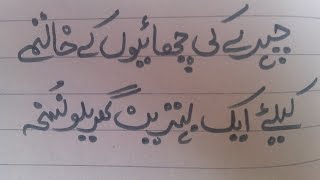 چہرے کی چھائیوں کے خاتمے
کیلئے ایک بہترین گھریلو نسخہ